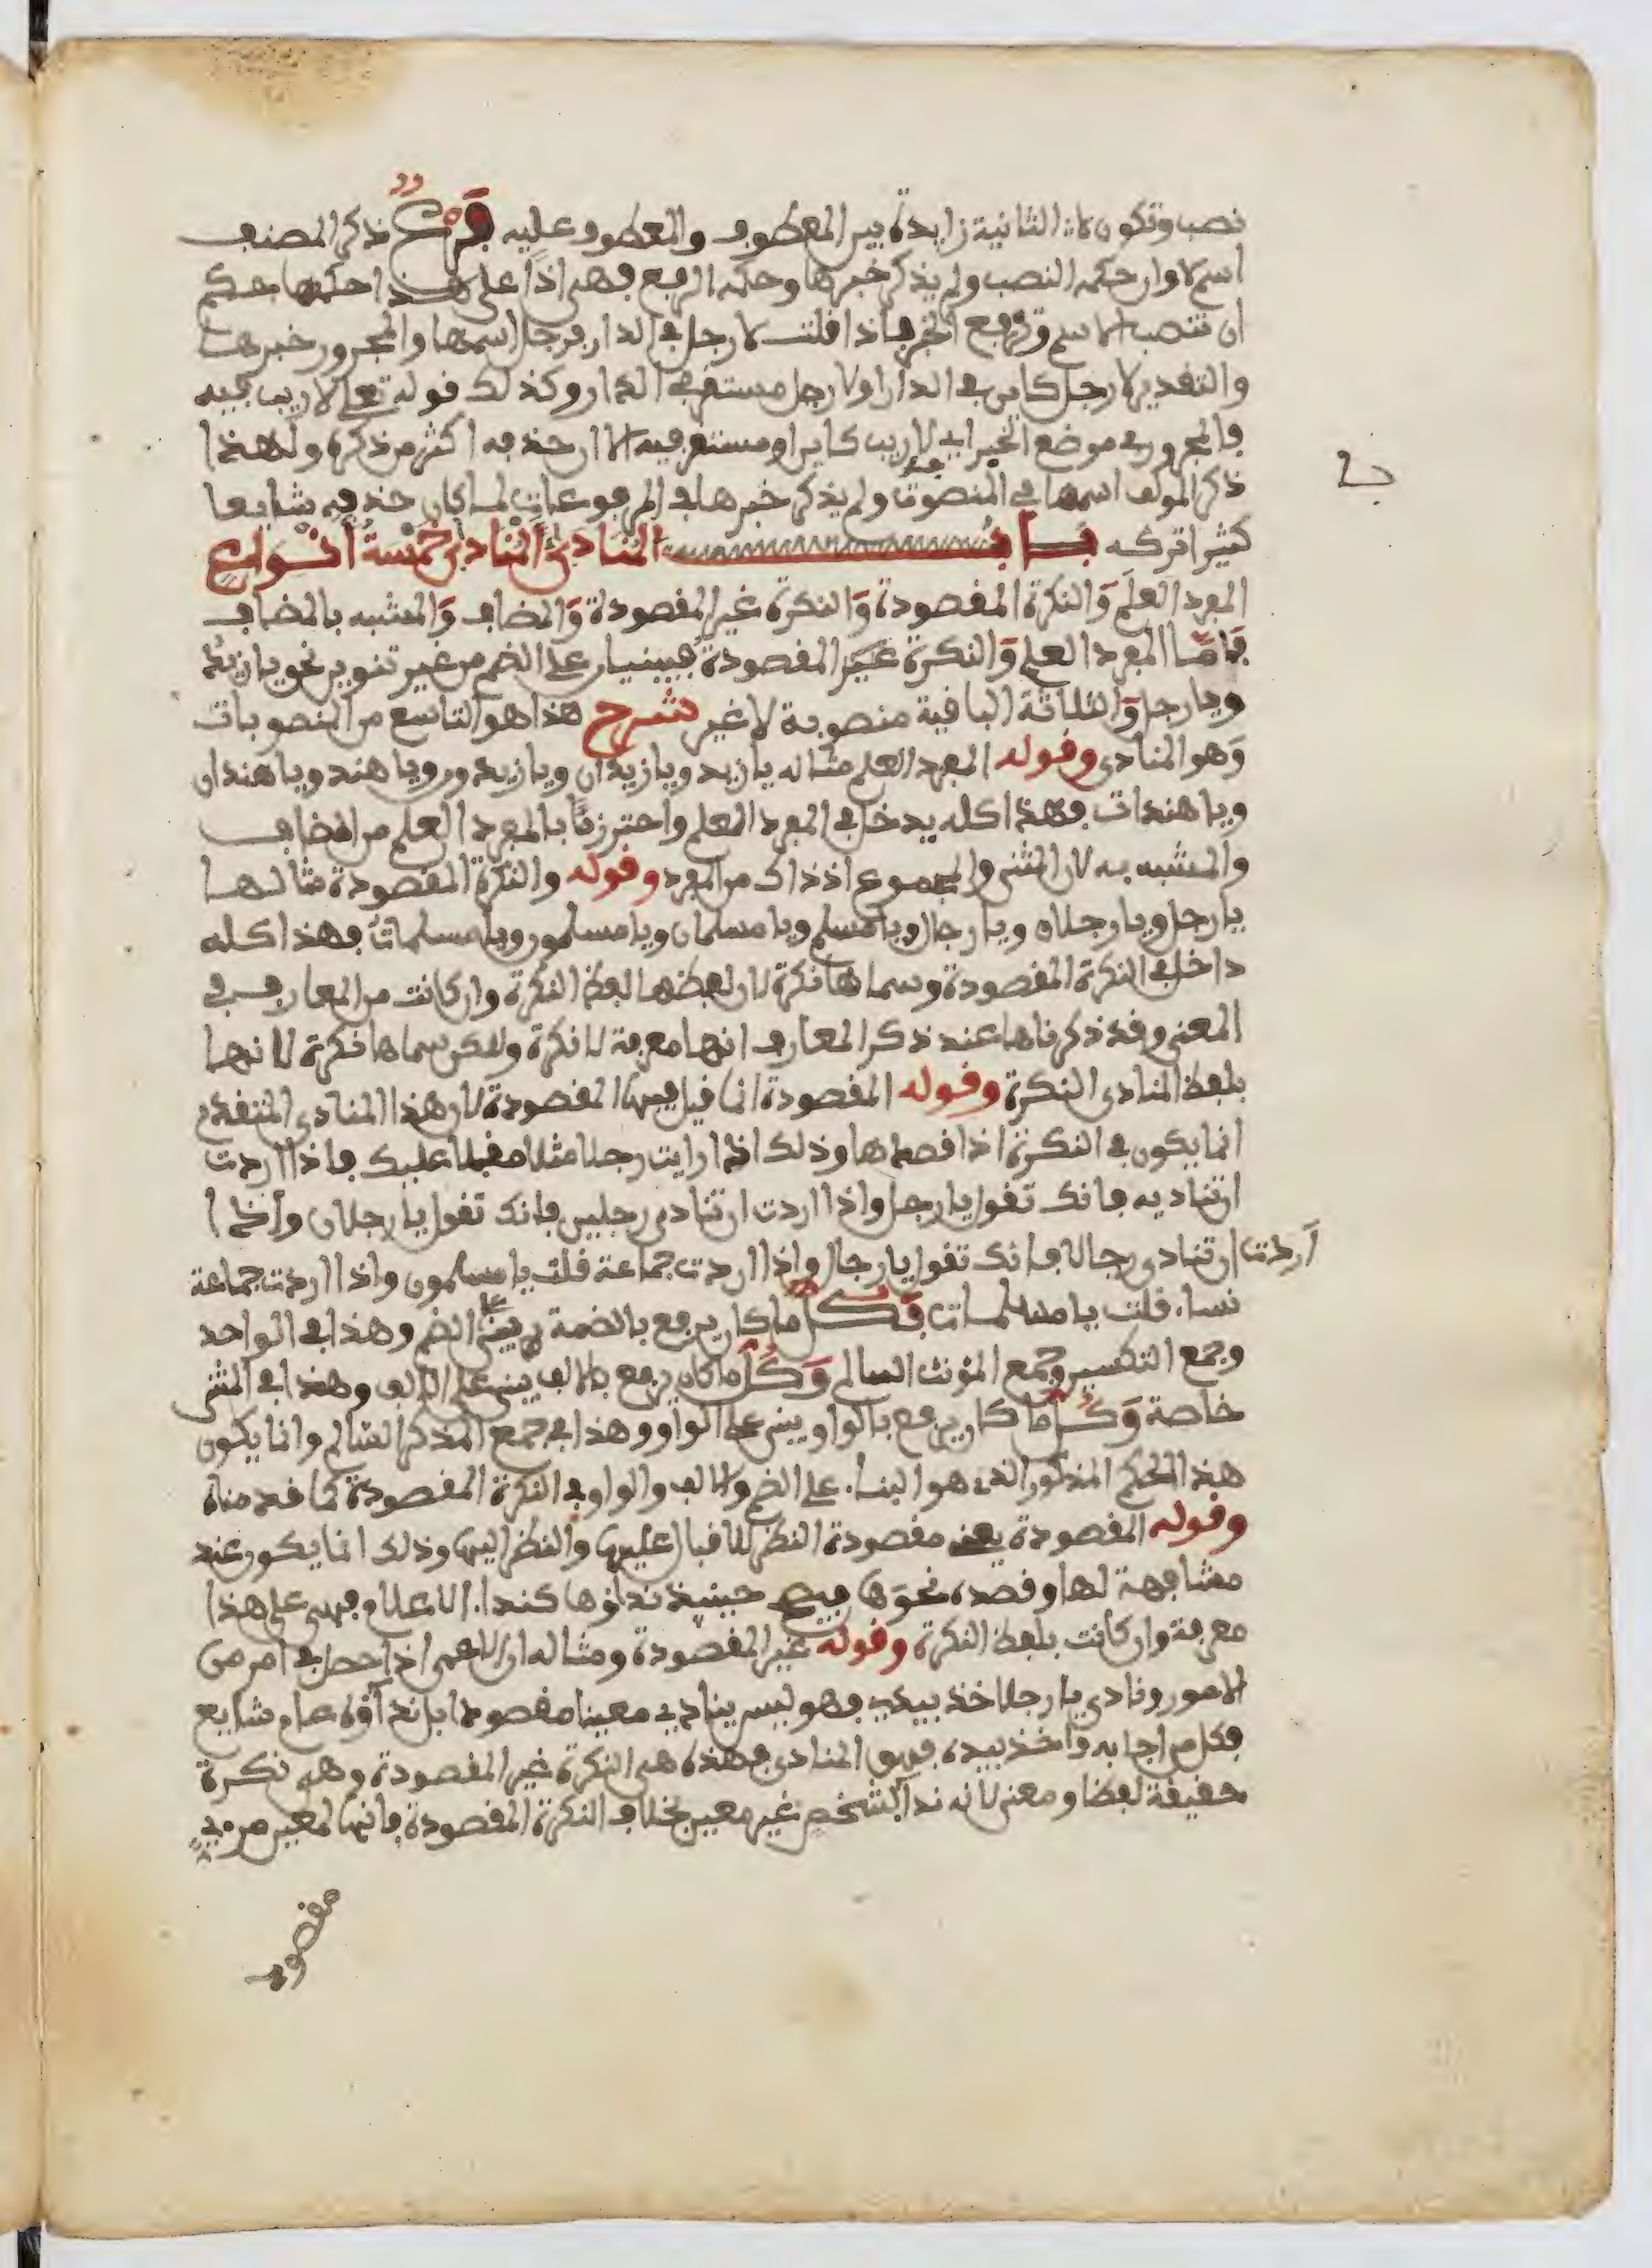 نصب وتكون لا الثانية زايدة بين المعطوف والمعطوف عليه فرع ذكر المصنف
اسم لا وان حكمه النصب ولم يذكر خبرها وحكمه الرفع فهى اذا على هذا حكمها حكم
ان تنصب الاسم وترفع الخبر فاذا قلت لا رجل في الدار فرجل اسمها والمجرور خبرها
والتقدير لا رجل كاين في الدار او لا رجل مستقر في الدار وكذلك قوله تعلى لا ريب فيه
فالمجرور في موضع الخبر اي لا ريب كاين او مستقر فيه الا ان حذفه اكثر من ذكره ولهذا
ذكر المولف اسمها في المنصوبات ولم يذكر خبرها في المرفوعات لما كان حذفه شايعا
كثيرا تركه باب المنادى المنادى خمسة انواع
المفرد العلم والنكرة المقصودة والنكرة غير المقصودة والمضاف والمشبه بالمضاف
فاما المفرد العلم والنكرة غير المقصودة فيبنيان على الضم من غير تنوين نحو يا زيد
ويا رجل والثلاثة الباقية منصوبة لا غير شرح هذا هو التاسع من المنصوبات
وهو المنادى وقوله المفرد العلم مثاله يا زيد ويا زيدان ويا زيدون ويا هند ويا هندان
ويا هندات فهذا كله يدخل في المفرد العلم واحترزنا بالمفرد العلم من المضاف
والمشبه به لان المثنى والمجموع اذ ذاك من المفرد وقوله والنكرة المقصودة مثالها
يا رجل ويا رجلان ويا رجال ويا مسلم ويا مسلمان ويا مسلمون ويا مسلمات فهذا كله
داخل في النكرة المقصودة وسماها نكرة لان لفظها لفظ النكرة وان كانت من المعارف في
المعنى وقد ذكرناها عند ذكر المعارف انها معرفة لا نكرة ولكن سماها نكرة لانها
بلفظ المنادى النكرة وقوله المقصودة انما قيل فيها المقصودة لان هذا المنادى المتقدم
انما يكون في النكرة اذا قصدها وذلك اذا رايت رجلا مثلا مقبلا عليك فاذا اردت
ان تناديه فانك تقول يا رجل واذا اردت ان تنادي رجلين فانك تقول يا رجلان واذا
اردت ان تنادى رجالا فانك تقول يا رجال واذا اردت جماعة قلت يا مسلمون واذا اردت جماعة
نساء قلت يا مسلمات فكل ما كان يرفع بالضمة يبنى على الضم وهذا في الواحد
وجمع التكسير وجمع المؤنث السالم وكل ما كان يرفع بالالف يبنى على الالف وهذا في المثنى
خاصة وكل ما كان يرفع بالواو يبنى على الواو وهذا في جمع المذكر السالم وانما يكون
هذا الحكم المذكور الذي هو البناء على الضم والالف والواو في النكرة المقصودة كما قدمناه
وقوله المقصودة يعني مقصودة النظر للاقبال عليها والنظر اليها وذلك انما يكون عند
مشافهة لها وقصده نحوها حينئذ نداؤها كنداء الاعلام فهى على هذا
معرفة وان كانت بلفظ النكرة وقوله غير المقصودة ومثاله ان الاعمى اذا حصل في امر من
الامور ونادى يا رجلا خذ بيدي فهو ليس ينادي معينا مقصودا بل نداؤه عام شايع
فكل من اجابه واخذ بيده فهو المنادى فهذه هى النكرة غير المقصودة وهي نكرة
حقيقة لفظا ومعنى لانه نداء لشخص غير معين بخلاف النكرة المقصودة فانها لمعين مرءي
مقصود